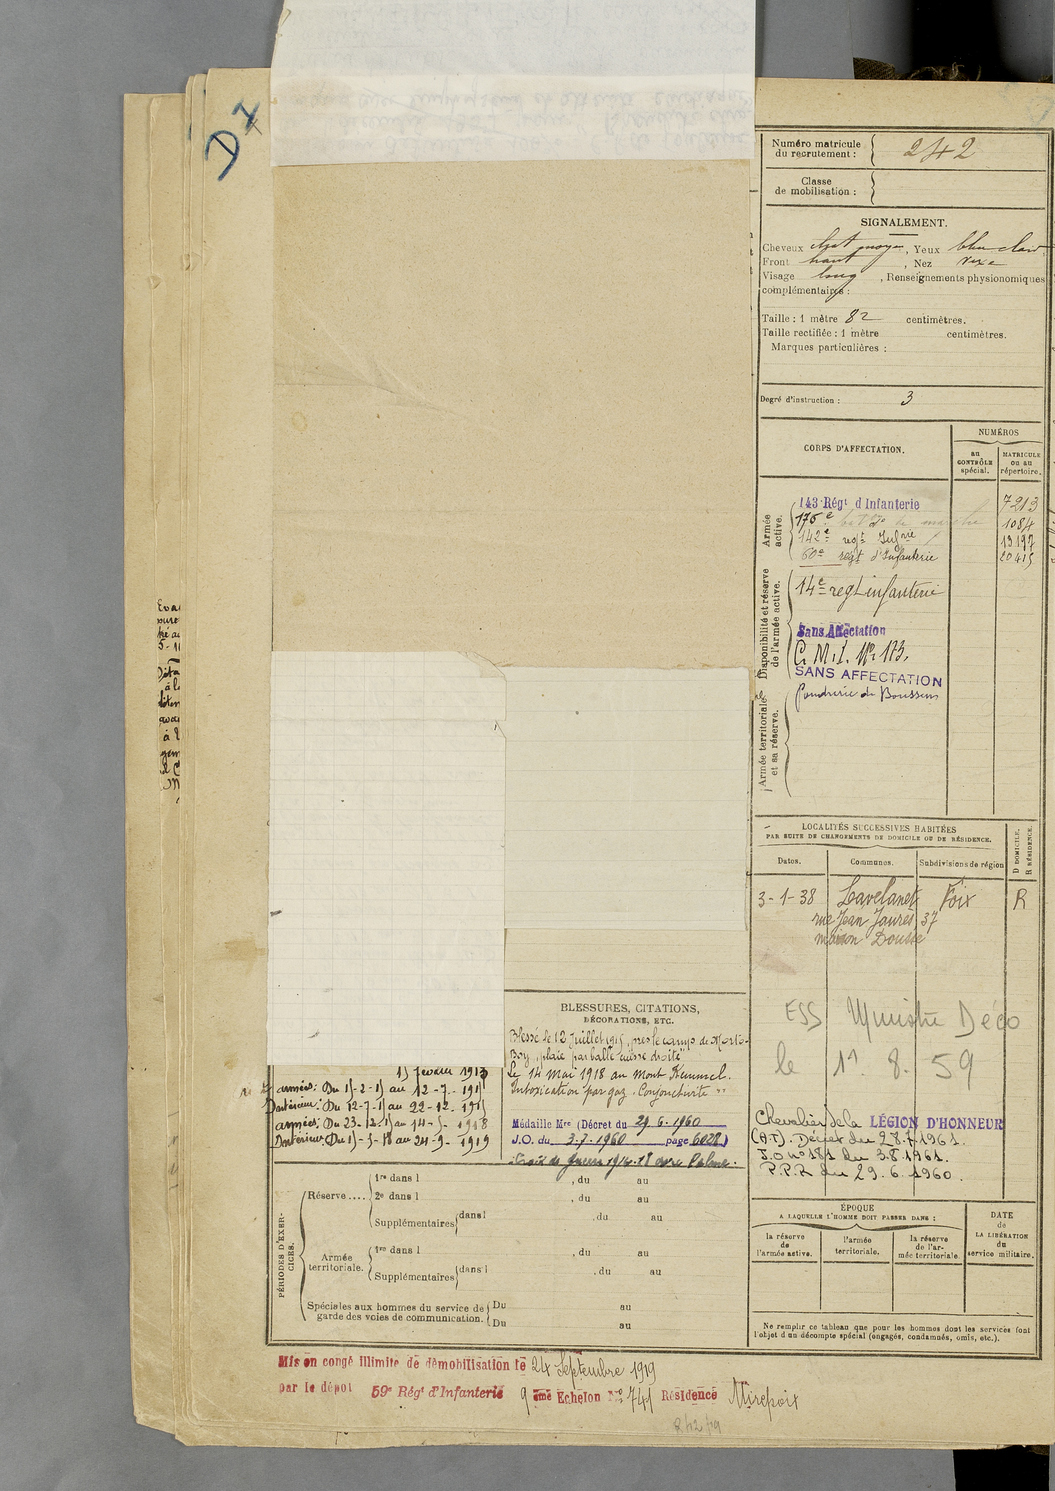 D 7
Numéro matricule
du recrutement : 242
Classe
de mobilisation :
SIGNALEMENT.
Cheveux chat moyen, Yeux bleu clair
Front haut, Nez
Visage long, Renseignements physionomiques
complémentaires :
Taille : 1 mètre 82 centimètres.
Taille rectifiée : 1 mètre centimètres.
Marques particulières :
Degré d'instruction : 3
CORPS D'AFFECTATION.
NUMÉROS
au
CONTRÔLE
spécial.
MATRICULE
ou au
répertoire.
Armée
active.
143 Régt d'Infanterie 7213
176e de marche 1084
142e regt Infrie 13197
60e regt d'Infanterie 20415
Disponibilité et réserve
de l'armée active.
14e regt infanterie
Sans Affectation
C. M. I. No 173.
SANS AFFECTATION
Armée territoriale
et sa réserve.
Poudrerie de Boussens
LOCALITÉS SUCCESSIVES HABITÉES
PAR SUITE DE CHANGEMENTS DE DOMICILE OU DE RÉSIDENCE.
D DOMICILE.
R RÉSIDENCE.
Dates. Communes. Subdivisions de région
3-1-38 Lavelanet Foix R
rue Jean Jaurès 37
maison Dousse
ESS Ministre Déco
le 1. 8. 59
Chevalier de la LÉGION D'HONNEUR
(A.T). Décret du 28.7.1961.
J.O no 181 du 3.8.1961.
P.P.R du 29.6.1960.
BLESSURES, CITATIONS,
DÉCORATIONS, ETC.
Blessé le 12 Juillet 1915, près le camp de
"plaie par balle cuisse droite"
Le 14 Mai 1918 au Mont Kemmel.
Intoxication par gaz. Conjonctivite "
Médaille Mre (Décret du 29.6.1960
J.O. du 3.7.1960 page 6028)
Croix de guerre 1914-18 avec Palme.
Février 1913
armées: Du 15-2-15 au 12-7-1915
Intérieur: Du 12-7-15 au 22-12-1915
armées: Du 23-12-15 au 14-5-1918
Intérieur: Du 15-5-18 au 24-9-1919
PÉRIODES D'EXER-
CICES.
Réserve ....
1re dans l , du au
2e dans l , du au
Supplémentaires dans l , du au
Armée
territoriale.
1re dans l , du au
Supplémentaires dans l , du au
Spéciales aux hommes du service de
garde des voies de communication.
Du au
Du au
ÉPOQUE
A LAQUELLE L'HOMME DOIT PASSER DANS :
la réserve
de
l'armée active.
l'armée
territoriale.
la réserve
de l'ar-
mée territoriale.
DATE
de
LA LIBÉRATION
du
service militaire.
Ne remplir ce tableau que pour les hommes dont les services font
l'objet d'un décompte spécial (engagés, condamnés, omis, etc.).
Mis en congé illimité de démobilisation le 24 Septembre 1919
par le dépot 59e Régt d'Infanterie 9 ème Echelon No 741 Résidence Mirepoix